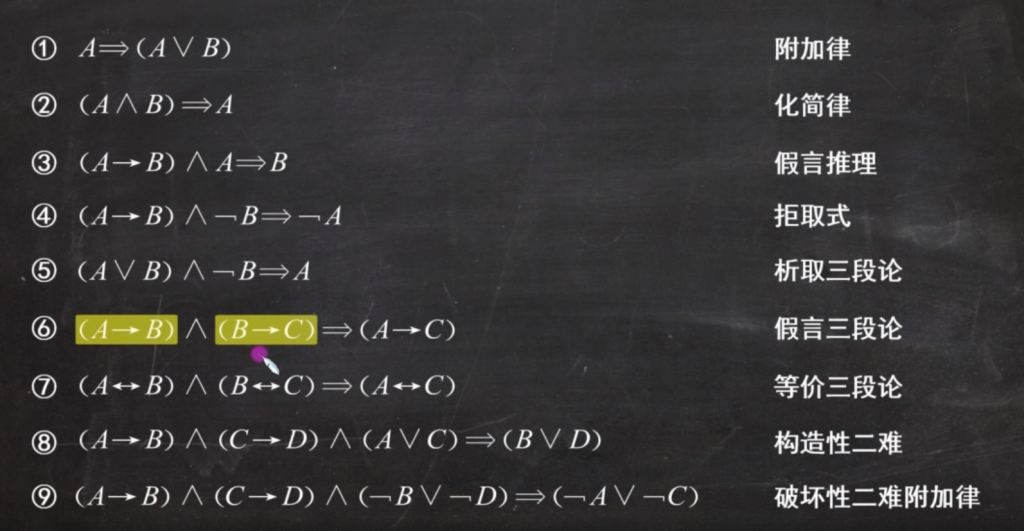 ① A⇒(A∨B) 附加律
② (A∧B)⇒A 化简律
③ (A→B)∧A⇒B 假言推理
④ (A→B)∧¬B⇒¬A 拒取式
⑤ (A∨B)∧¬B⇒A 析取三段论
⑥ (A→B)∧(B→C)⇒(A→C) 假言三段论
⑦ (A↔B)∧(B↔C)⇒(A↔C) 等价三段论
⑧ (A→B)∧(C→D)∧(A∨C)⇒(B∨D) 构造性二难
⑨ (A→B)∧(C→D)∧(¬B∨¬D)⇒(¬A∨¬C) 破坏性二难附加律